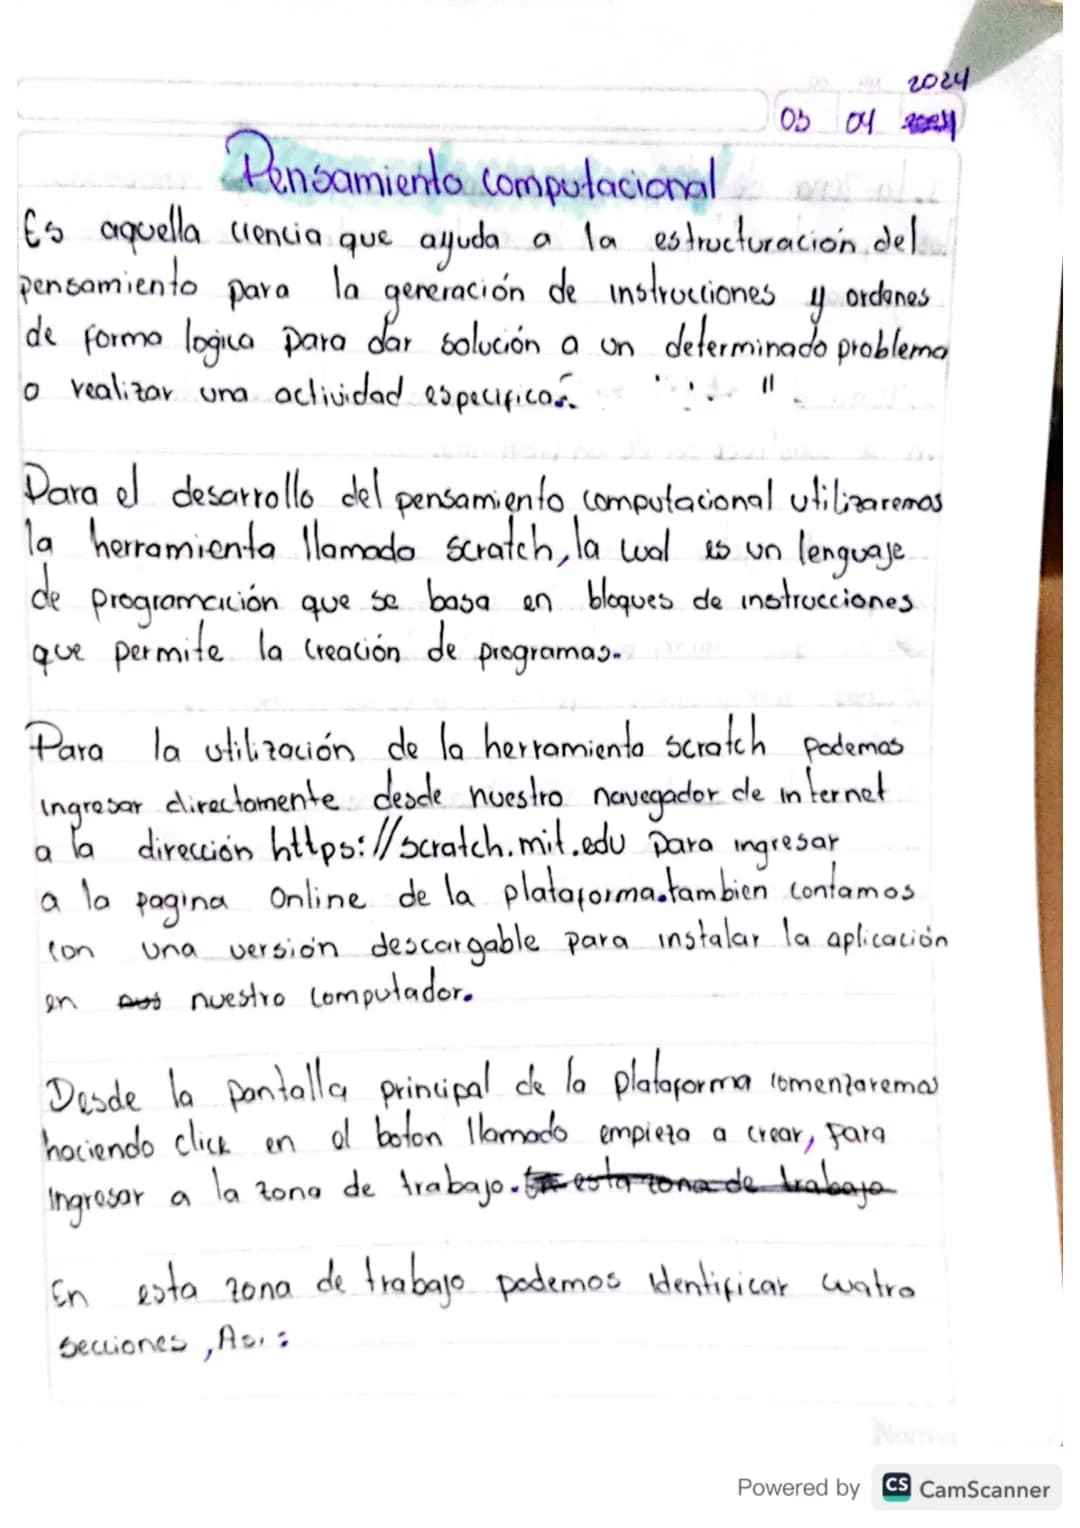 2024
03 04
Pensamiento computacional
Es aquella ciencia que ayuda a la estructuración del
pensamiento para la generación de instrucciones y ordenes
de forma logica para dar solución a un determinado problema
o realizar una actividad especifica.
Para el desarrollo del pensamiento computacional utilizaremos
la herramienta llamado scratch, la cual es un lenguaje
de programación que se basa en bloques de instrucciones
que permite la creación de programas.
Para la utilización de la herramienta scratch podemos
ingresar directamente desde nuestro navegador de internet
a la dirección https://scratch.mit.edu para ingresar
a la pagina Online de la plataforma.tambien contamos
con una versión descargable para instalar la aplicación
en nuestro computador.
Desde la pantalla principal de la plataforma comenzaremos
haciendo click en el boton llamado empieza a crear, para
ingresar a la zona de trabajo. esta zona de trabajo
En esta zona de trabajo podemos identificar cuatro
secciones, Asi:
Norma
Powered by CS CamScanner